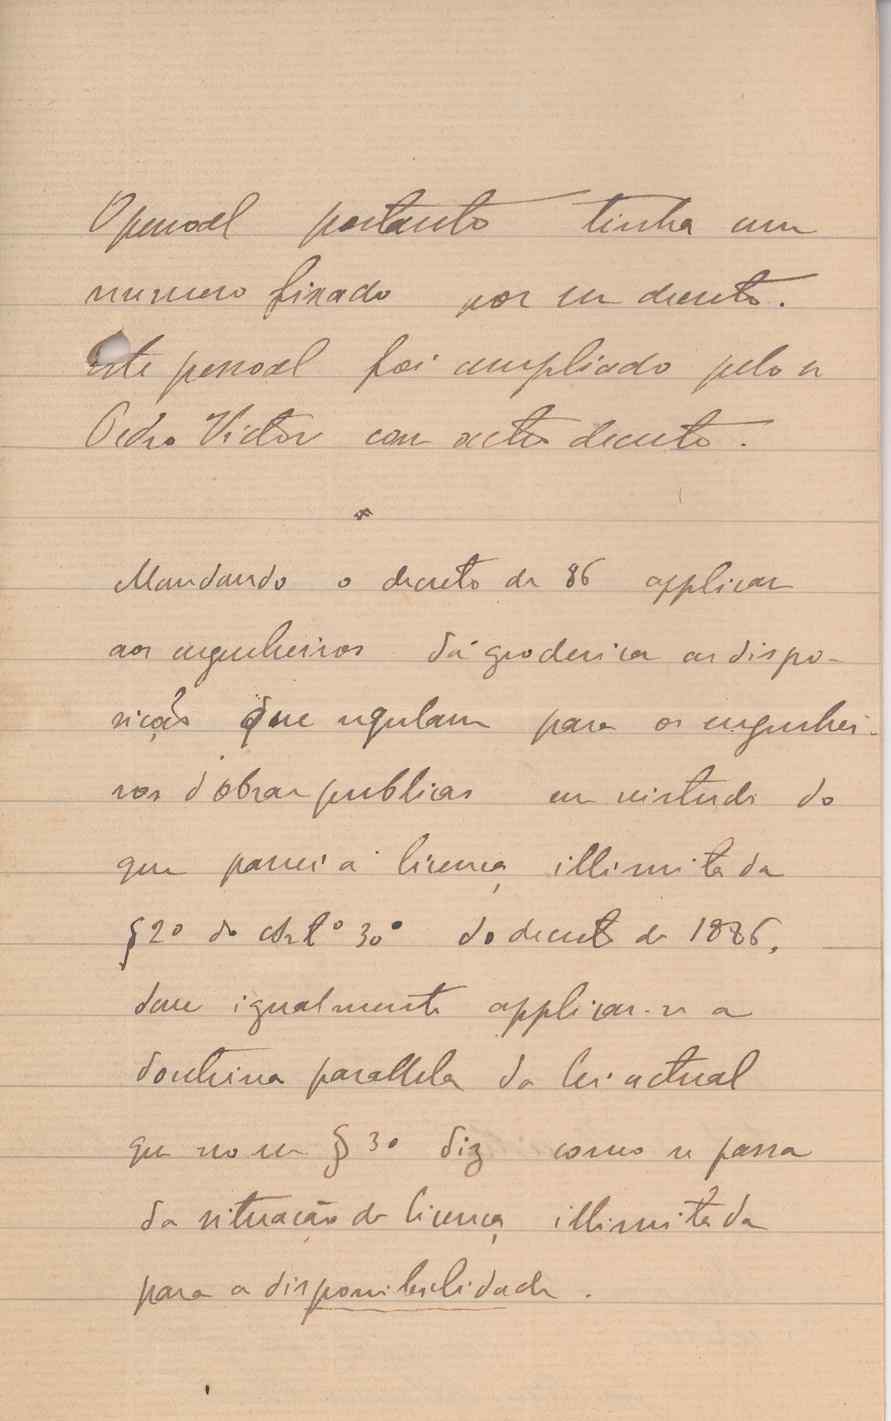 O pessoal portanto tinha um
numero fixado por um decreto.
Este pessoal foi ampliado pelo sr
Pedro Victor com outro decreto.
Mandando o decreto de 86 applicar
aos engenheiros da geodesica as dispo-
sições que regulam para os engenhei-
ros d'obras publicas em virtude do
que passei a licença illimitada
§ 2º do Artº 30º do decreto de 1886,
deve igualmente applicar-se a
doutrina parallela da lei actual
que no seu § 3º diz como se passa
da situação de licença illimitada
para a disponibilidade.